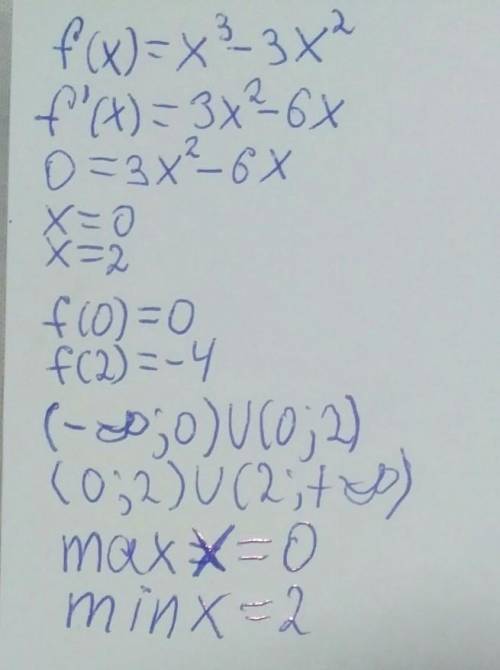 f(x)=x³-3x²
f'(x)=3x²-6x
0=3x²-6x
x=0
x=2
f(0)=0
f(2)=-4
(-∞;0)∪(0;2)
(0;2)∪(2;+∞)
max x=0
min x=2